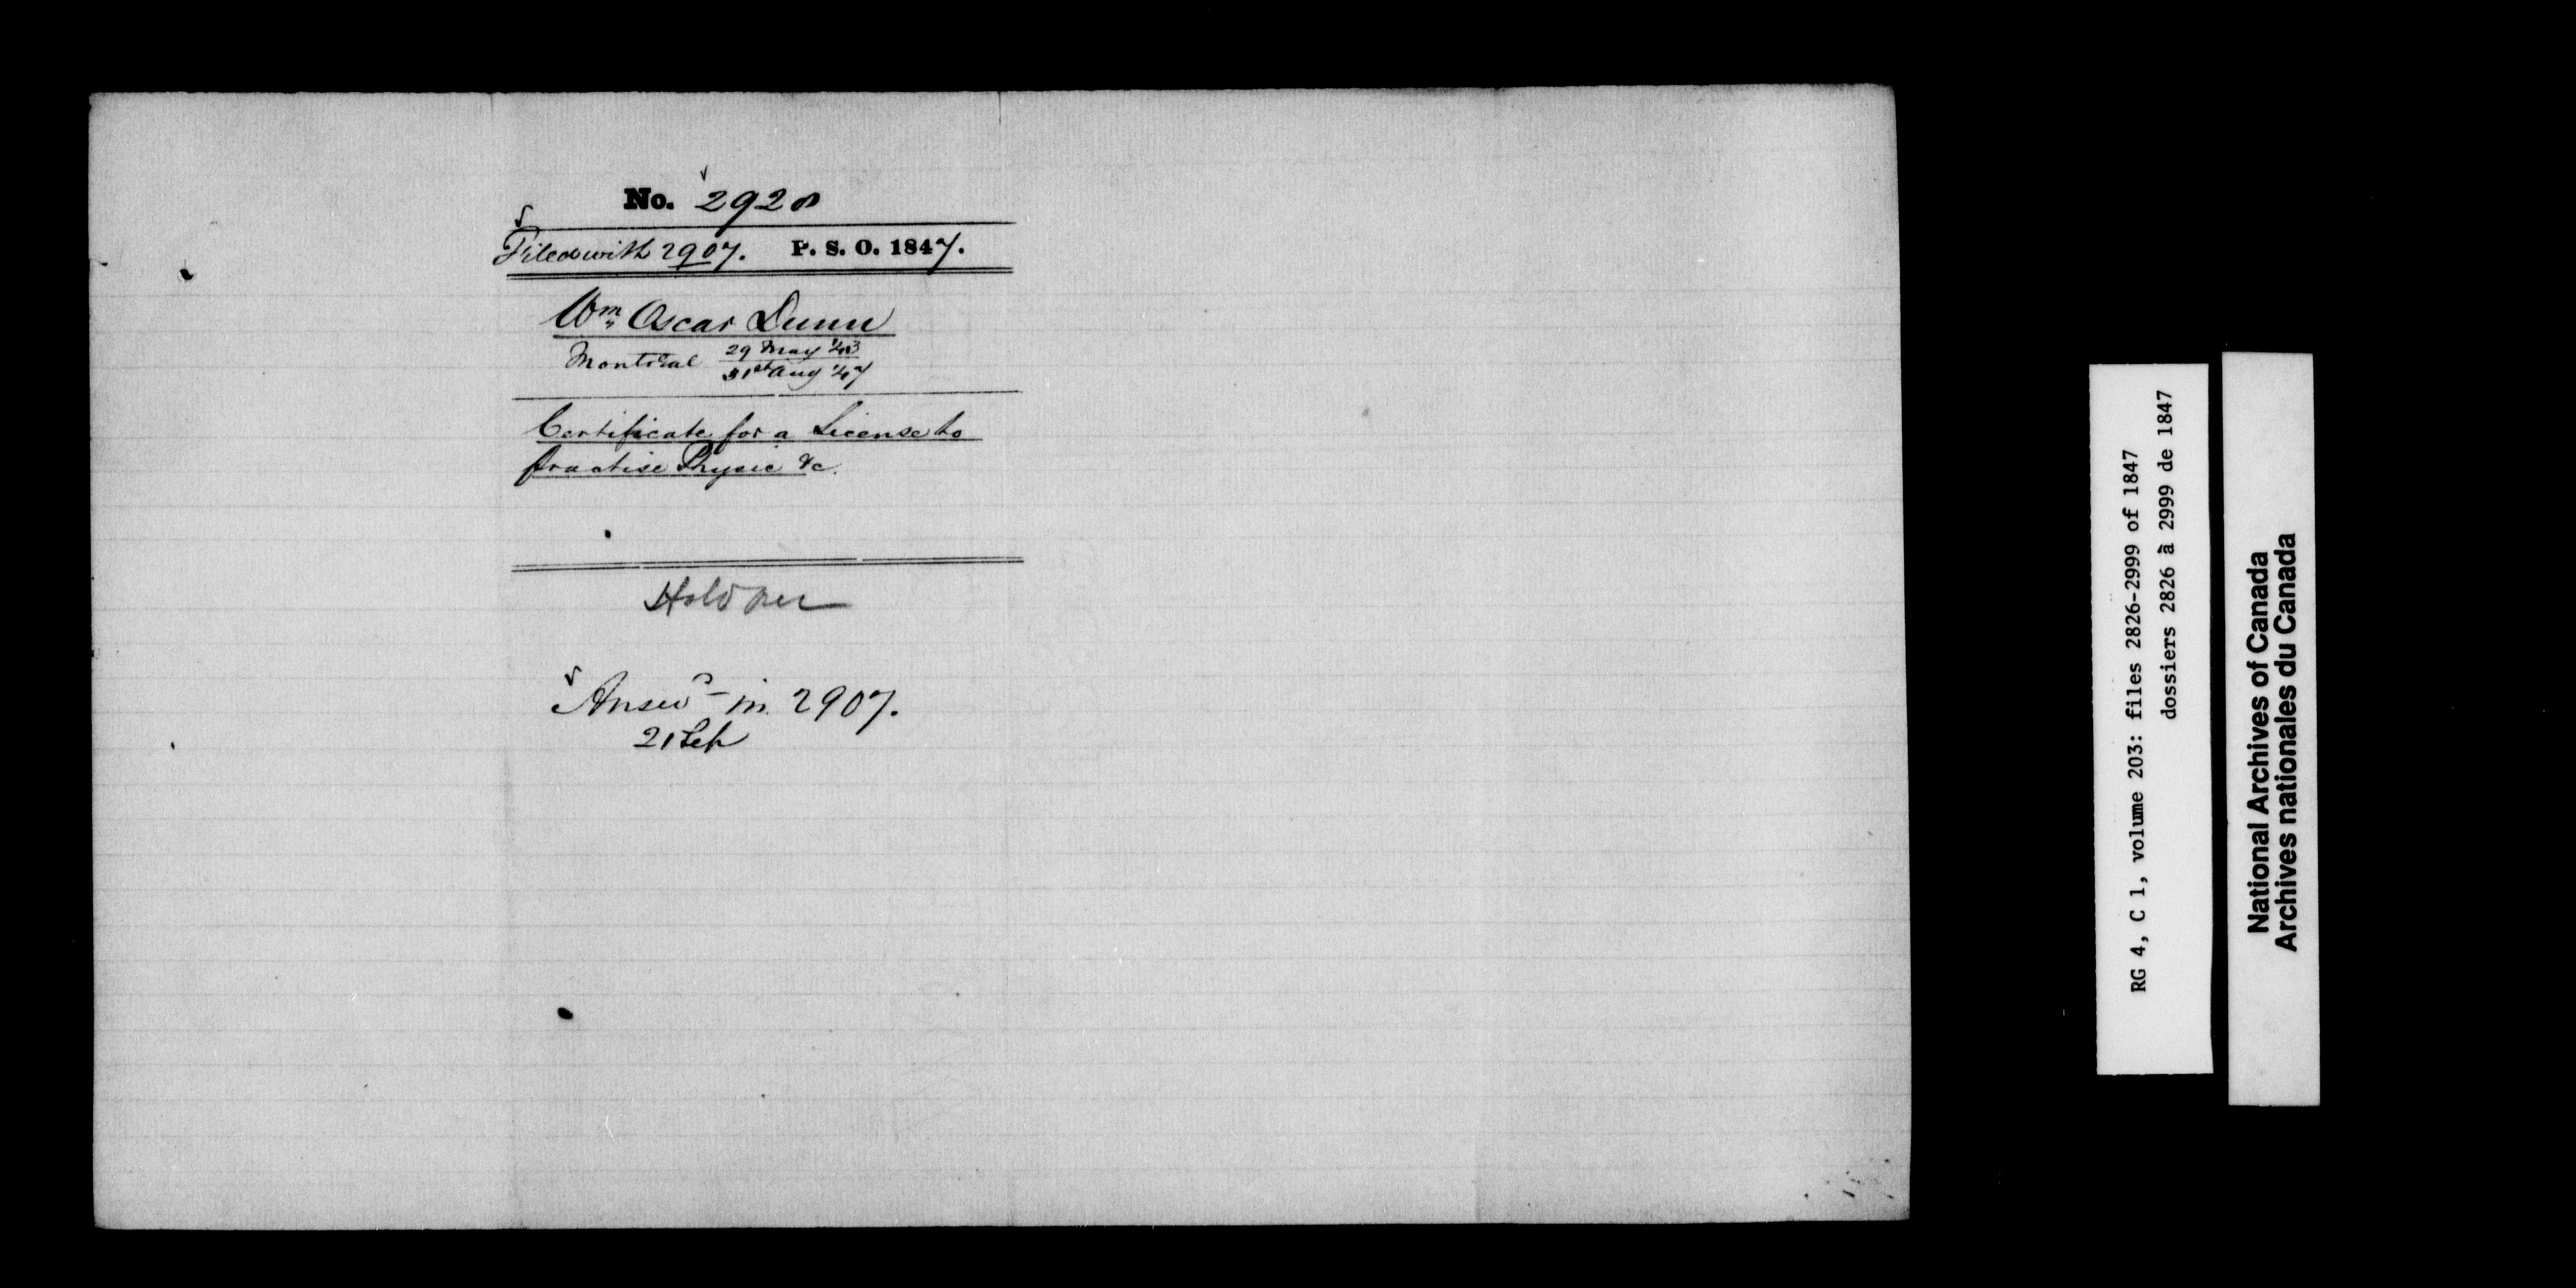 No. 2928
Filed with 2907. P. S. O. 1847.
Wm Oscar Dunn
Montreal 29 May '43
31st Aug '47
Certificate for a License to
practise Physic &c.
Hold over
Answd in 2907.
21 Sep
RG 4, C 1, volume 203: files 2826-2999 of 1847
dossiers 2826 à 2999 de 1847
National Archives of Canada
Archives nationales du Canada